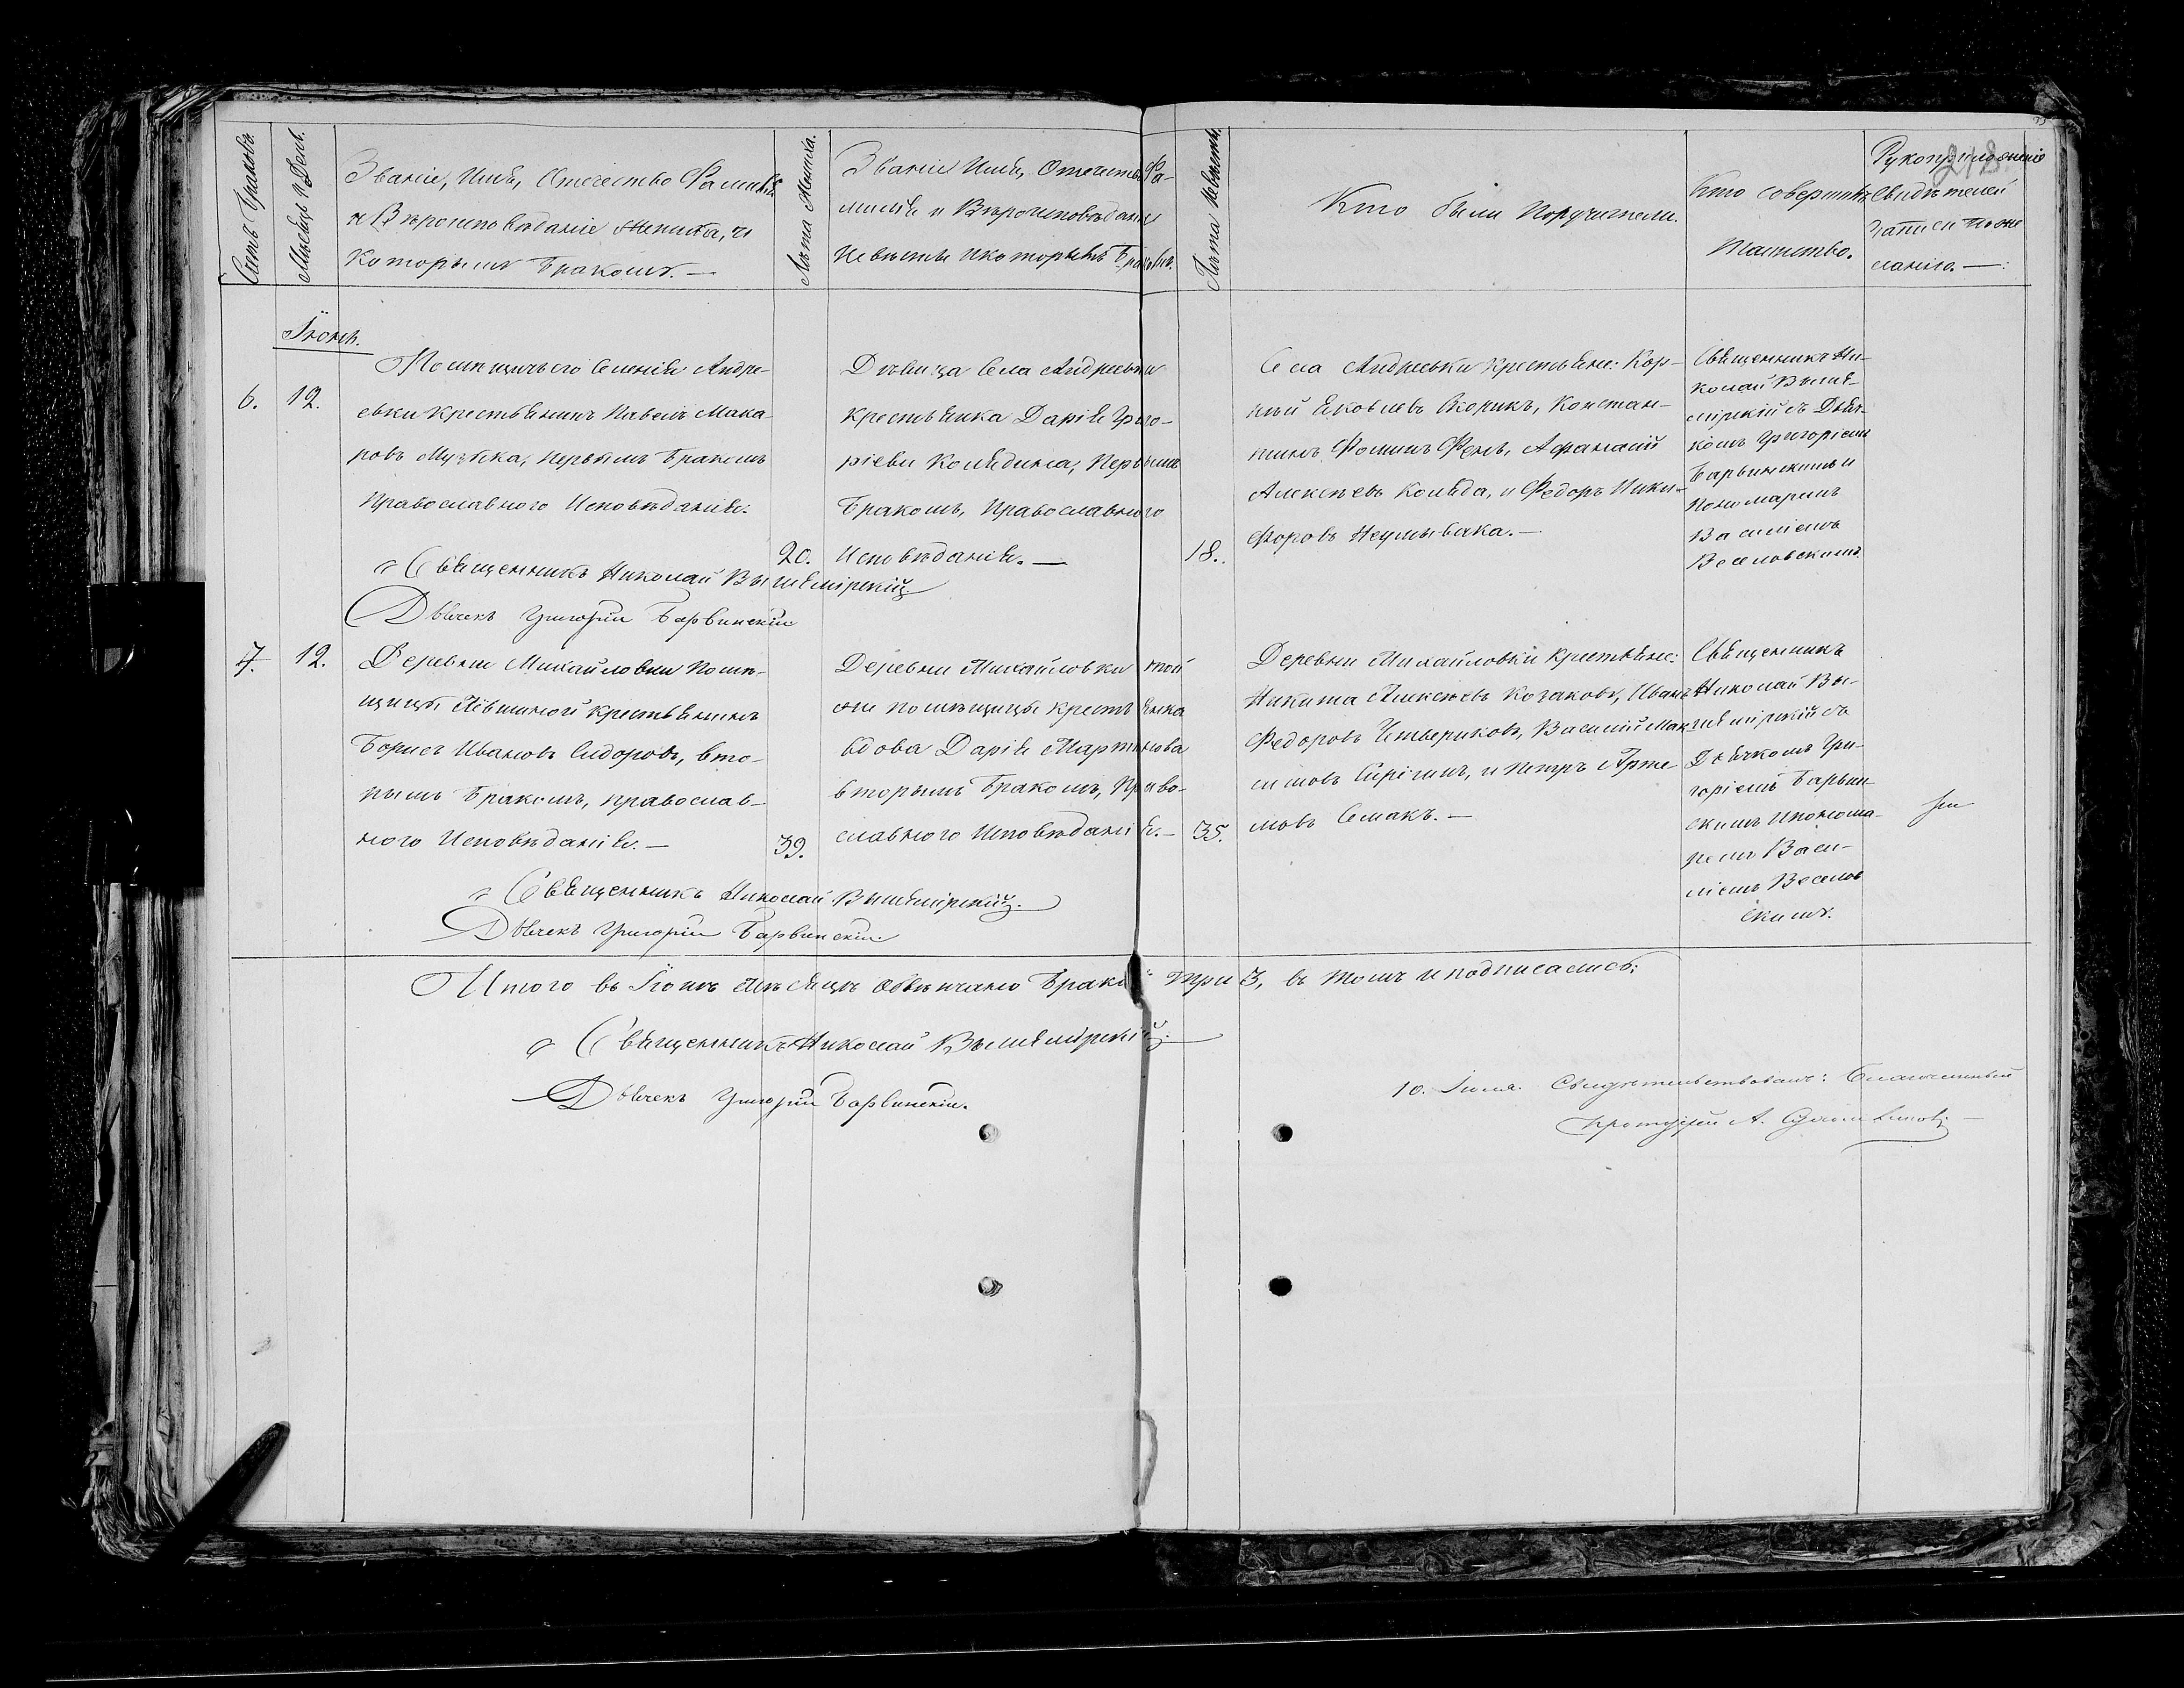 Счетъ Браковъ.
Мѣсяцъ и День.
Званіе, Имя, Отечество Фамилія
и Вѣроисповѣданіе Жениха, и
Которымъ Бракомъ. —
Лѣта Жениха.
Званіе Имя, Отечество Фа-
милія и Вѣроисповѣданіе
Невѣсты и которымъ Бракомъ.
Лѣта Невѣсты.
Кто были Поручители.
Кто совершилъ
Таинство.
Рукоприложеніе
Свидѣтелей
Записи по же
ланію. —
Іюнь.
6.
12.
Помѣщичьяго Селенія Андре-
евки Крестьянинъ Павелъ Мака
ровъ Музыка, первымъ Бракомъ
Православного Исповѣданія:
20.
Дѣвица Села Андреевки
Крестьянка Дарія Григо-
ріева Колядина, Первымъ
Бракомъ, Православного
Исповѣданія. —
18.
Села Андреевки Крестьяне: Кор-
ній Яковлевъ Скорикъ, Констан-
тинъ Фоминъ Фень, Афанасій
Алексѣевъ Коляда, и Федоръ Ники-
форовъ Неумывака. —
Священникъ Ни-
колай Выше-
мірскій съ Дьяч-
комъ Григоріемъ
Барвинскимъ и
Пономаремъ
Василіемъ
Веселовскимъ
Священникъ Николай Вышемірскій
Дьячекъ Григорій Барвинскій
7.
12.
Деревни Михайловки Помѣ-
щицы Крестьянинъ
Борисъ Ивановъ Сидоровъ, вто-
рымъ Бракомъ, православ-
ного Исповѣданія. —
39.
Деревни Михайловки той
же помѣщицы крестьянка
вдова Дарія Мартинова
вторымъ Бракомъ, Право-
славного Исповѣданія. —
35.
Деревни Михайловки Крестьяне:
Никита Алексѣевъ Козаковъ, Иванъ
Федоровъ Четвериковъ, Василій Мак
симовъ и Петръ Арте-
мовъ Семакъ. —
Священникъ
Николай Вы-
шемірскій съ
Дьячкомъ Гри-
горіемъ Барвин-
скимъ и понома-
ремъ Васи-
ліемъ Веселов
скимъ.
Священникъ Николай Вышемірскій.
Дьячекъ Григорій Барвинскій
Итого въ Іюнѣ Мѣсяцѣ обвѣнчано Браковъ три 3, въ томъ и подписались:
Священникъ Николай Вышемірскій
Дьячекъ Григорій Барвинскій.
10. Іюля. Свидѣтельствовалъ: Благочинный
протоіерей А.